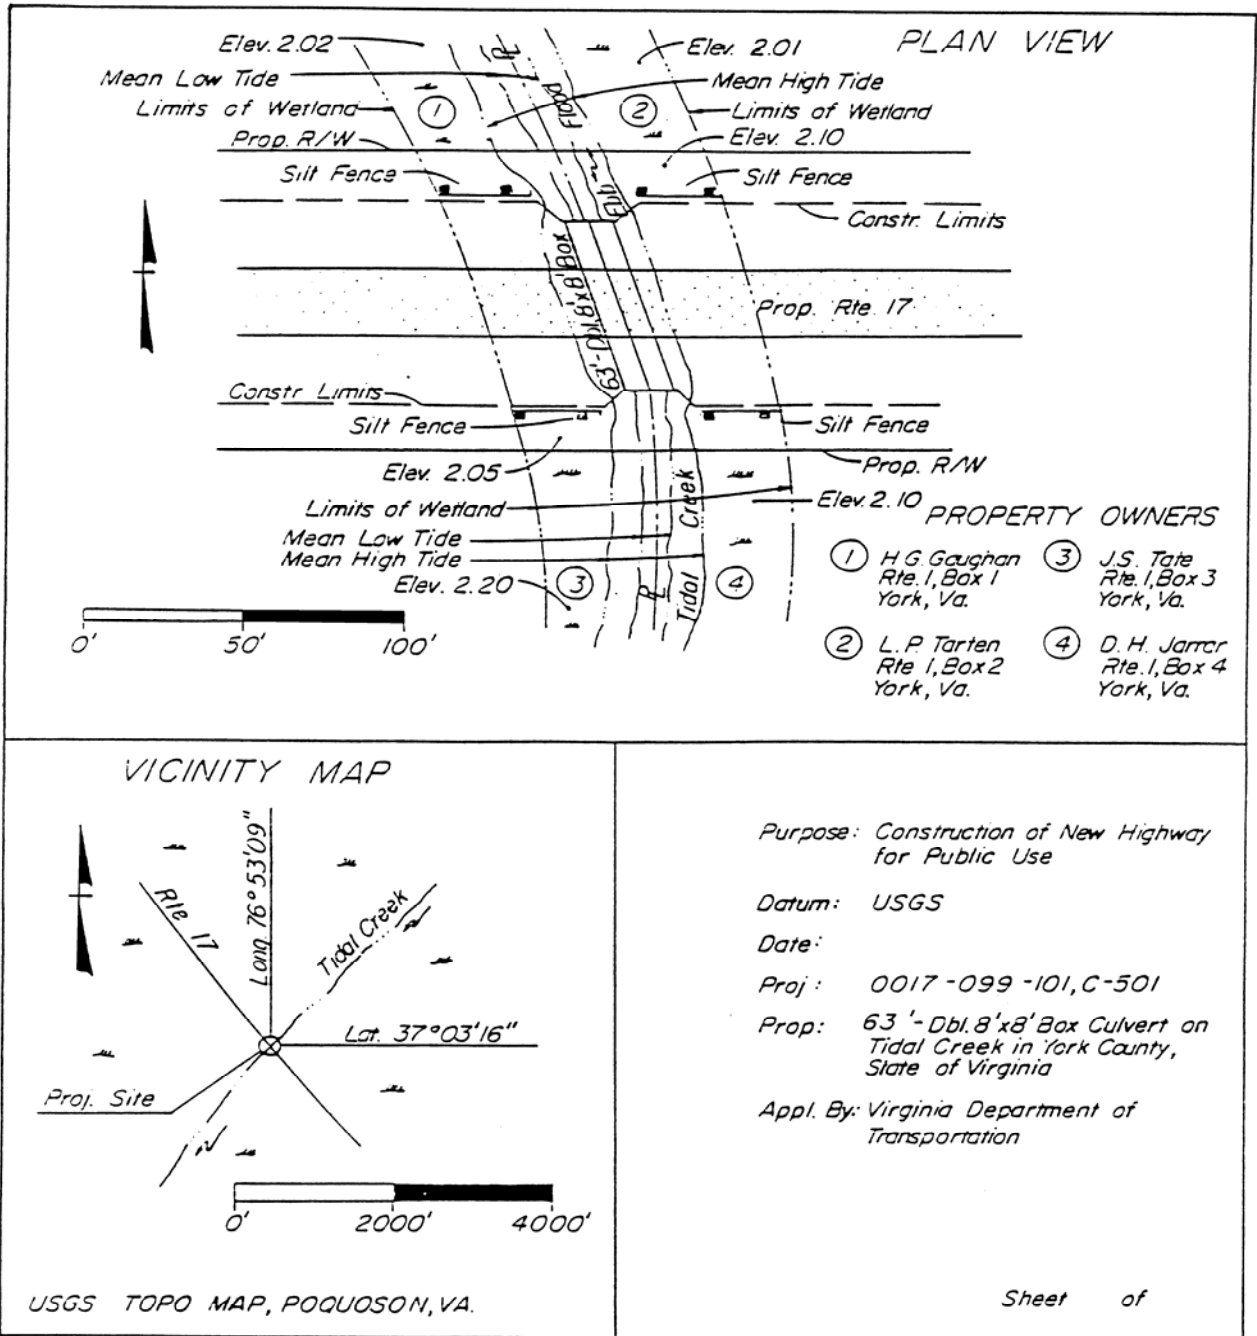 PLAN VIEW
Elev. 2.02
Elev. 2.01
Mean Low Tide
Mean High Tide
Limits of Wetland
Limits of Wetland
1
2
Flood
Ebb
PL
Elev. 2.10
Prop. R/W
Silt Fence
Silt Fence
Constr. Limits
63'-Dbl. 8'x8' Box
Prop. Rte. 17
Constr Limits
Silt Fence
Silt Fence
Elev. 2.05
Prop. R/W
Limits of Wetland
Elev. 2.10
Mean Low Tide
Mean High Tide
Elev. 2.20
3
4
PL
Tidal Creek
0' 50' 100'
PROPERTY OWNERS
1 H G. Gaughan
Rte. 1, Box 1
York, Va.
2 L. P. Tarten
Rte 1, Box 2
York, Va.
3 J.S. Tate
Rte. 1, Box 3
York, Va.
4 D. H. Jarrar
Rte. 1, Box 4
York, Va.
VICINITY MAP
Rte 17
Long. 76° 53'09"
Tidal Creek
Lat. 37°03'16"
Proj. Site
0' 2000' 4000'
USGS TOPO MAP, POQUOSON, VA.
Purpose: Construction of New Highway
for Public Use
Datum: USGS
Date:
Proj: 0017-099-101, C-501
Prop: 63'-Dbl. 8'x8' Box Culvert on
Tidal Creek in York County,
State of Virginia
Appl. By: Virginia Department of
Transportation
Sheet of